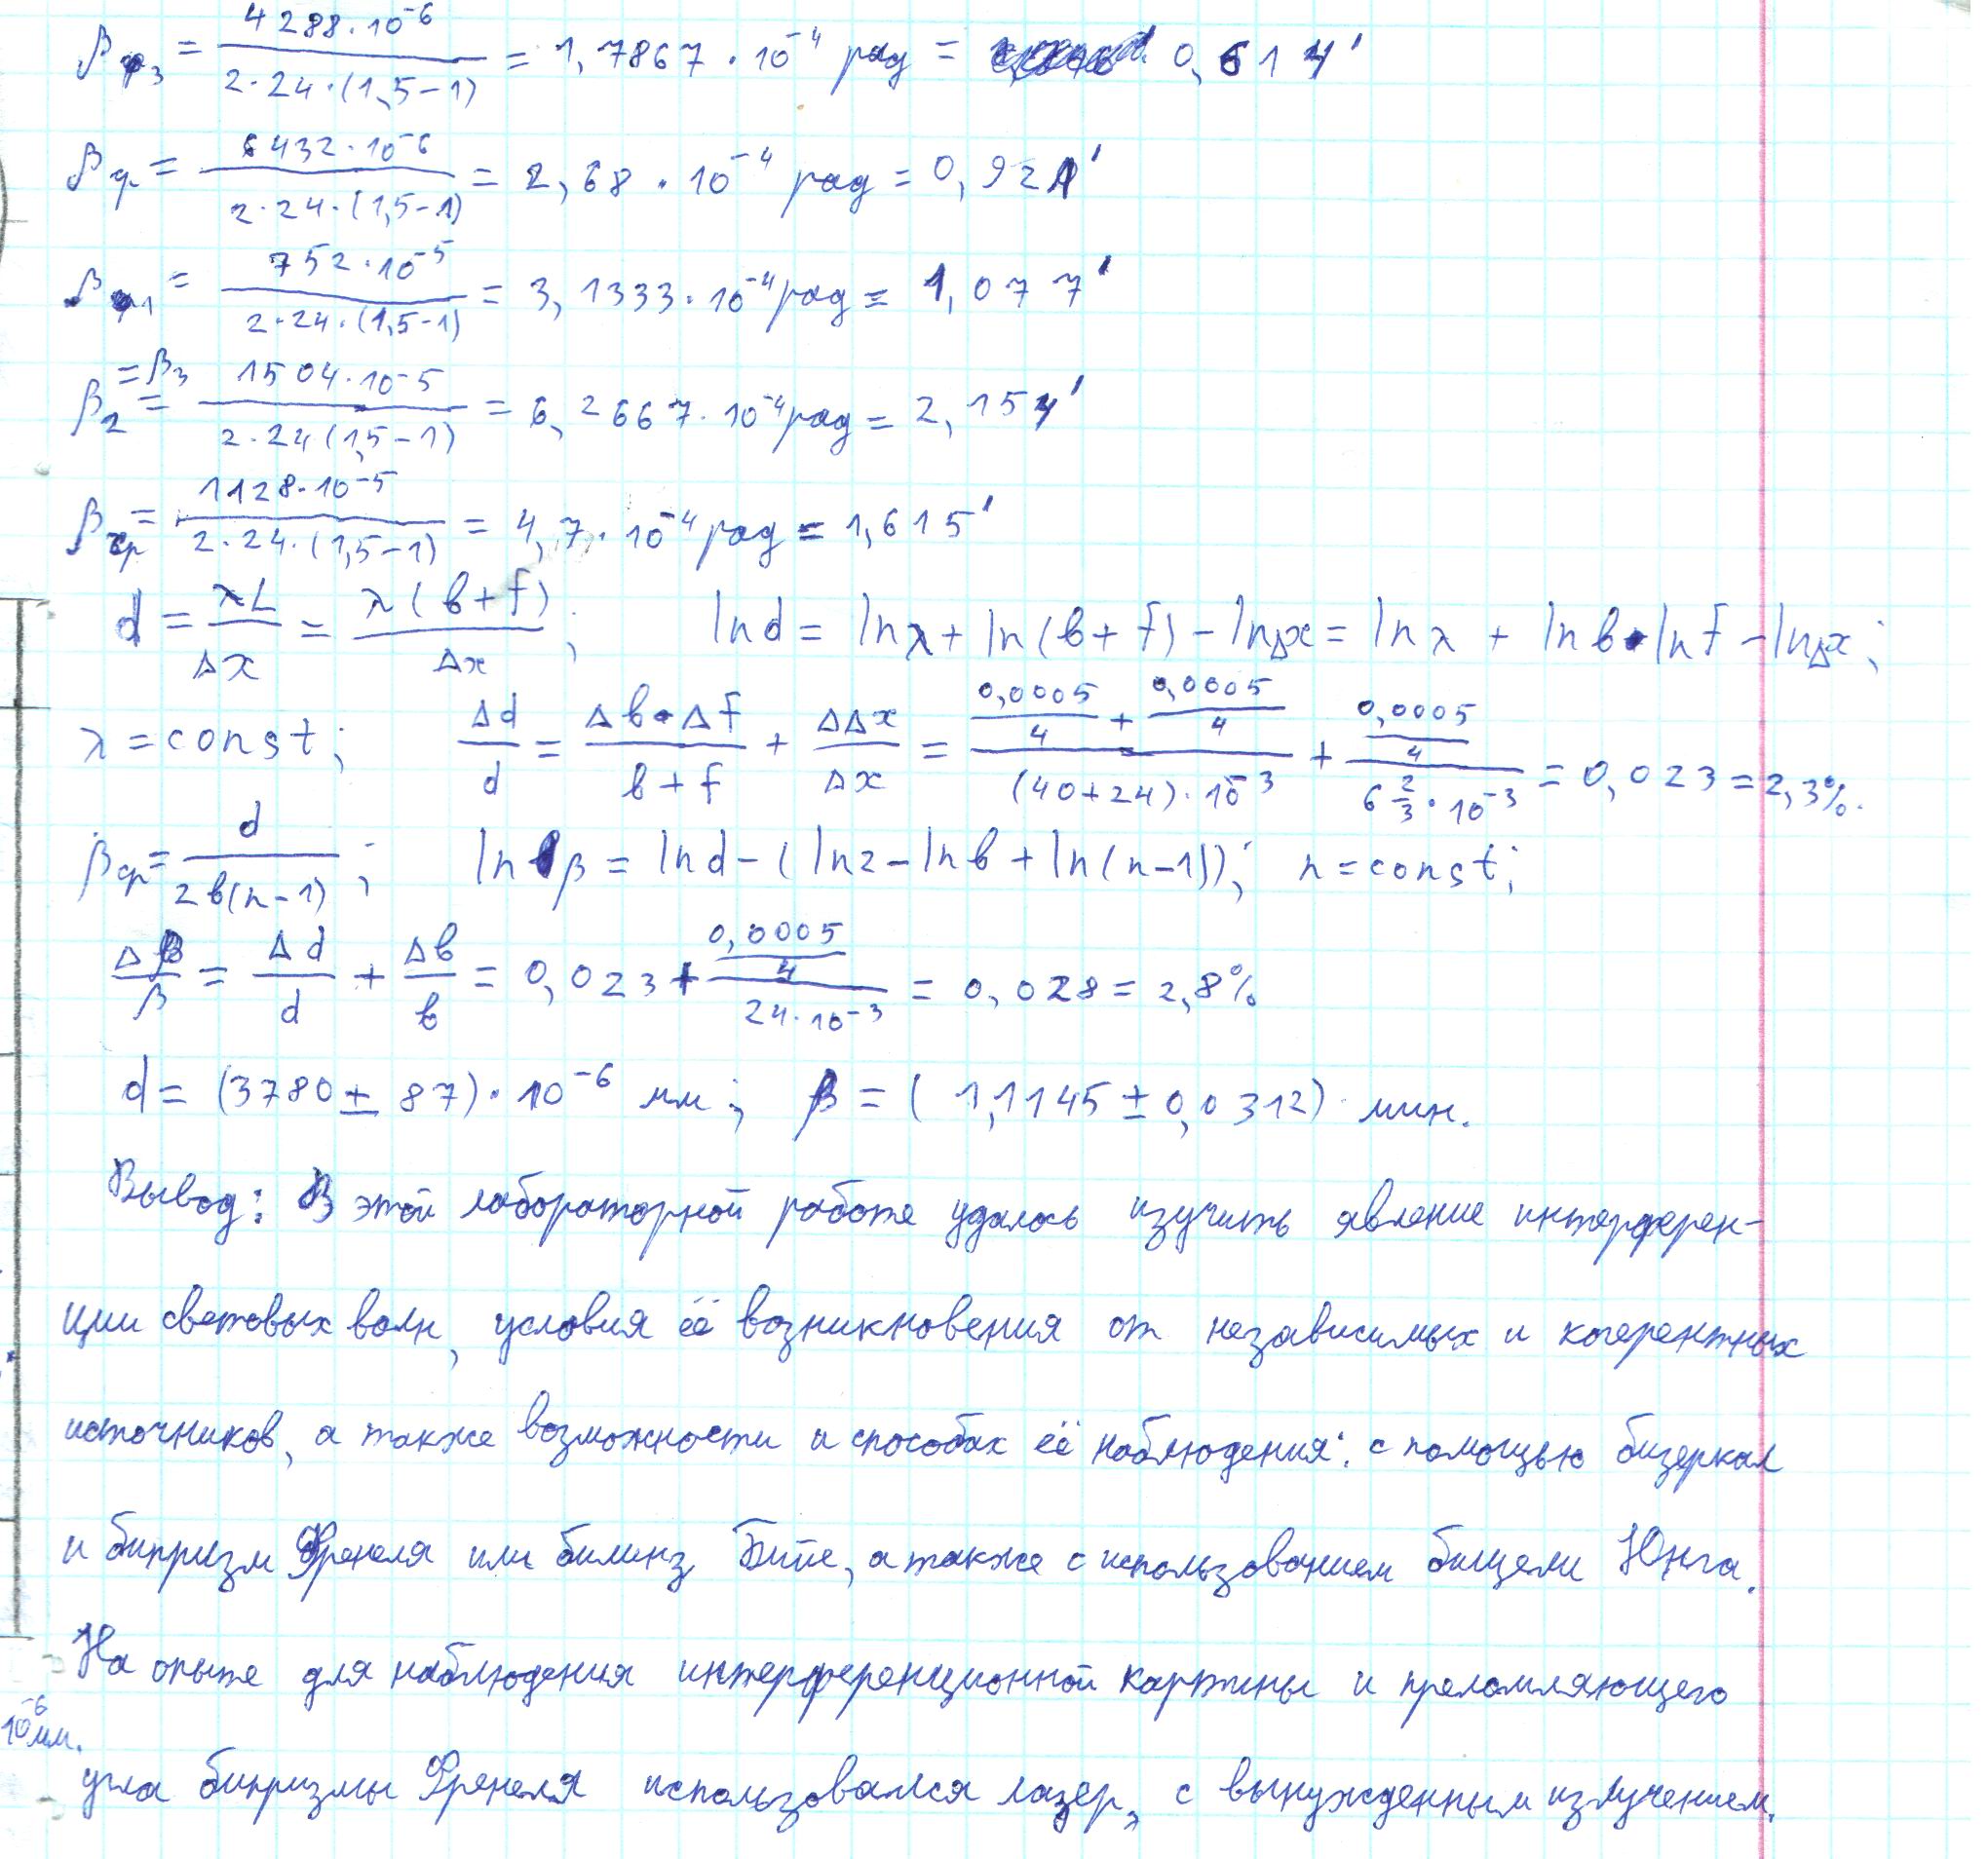 βф₃ = 4288·10⁻⁶ / 2·24·(1,5−1) = 1,7867·10⁻⁴ рад = 0,614'
βср = 6432·10⁻⁶ / 2·24·(1,5−1) = 2,68·10⁻⁴ рад = 0,921'
β₁ = 752·10⁻⁵ / 2·24·(1,5−1) = 3,1333·10⁻⁴ рад = 1,077'
β₂ = β₃ = 1504·10⁻⁵ / 2·24(1,5−1) = 6,2667·10⁻⁴ рад = 2,154'
βср = 1128·10⁻⁵ / 2·24·(1,5−1) = 4,7·10⁻⁴ рад = 1,615'
d = λL/Δx = λ(b+f)/Δx; ln d = ln λ + ln(b+f) − ln Δx = ln λ + ln b · ln f − ln Δx;
λ = const; Δd/d = Δb·Δf / b+f + ΔΔx/Δx = (0,0005/4 + 0,0005/4) / (40+24)·10⁻³ + (0,0005/4) / 6 2/3·10⁻³ = 0,023 = 2,3%.
βср = d / 2b(n−1); ln β = ln d − (ln 2 − ln b + ln(n−1)); n = const;
Δβ/β = Δd/d + Δb/b = 0,023 + (0,0005/4) / 24·10⁻³ = 0,028 = 2,8%
d = (3780 ± 87)·10⁻⁶ мм; β = (1,1145 ± 0,0312) мин.
Вывод: В этой лабораторной работе удалось изучить явление интерферен-
ции световых волн, условия её возникновения от независимых и когерентных
источников, а также возможности и способах её наблюдения: с помощью бизеркал
и бипризм Френеля или билинз Бийе, а также с использованием бищели Юнга.
На опыте для наблюдения интерференционной картины и преломляющего
10⁻⁶ мм.
угла бипризмы Френеля использовался лазер, с вынужденным излучением.